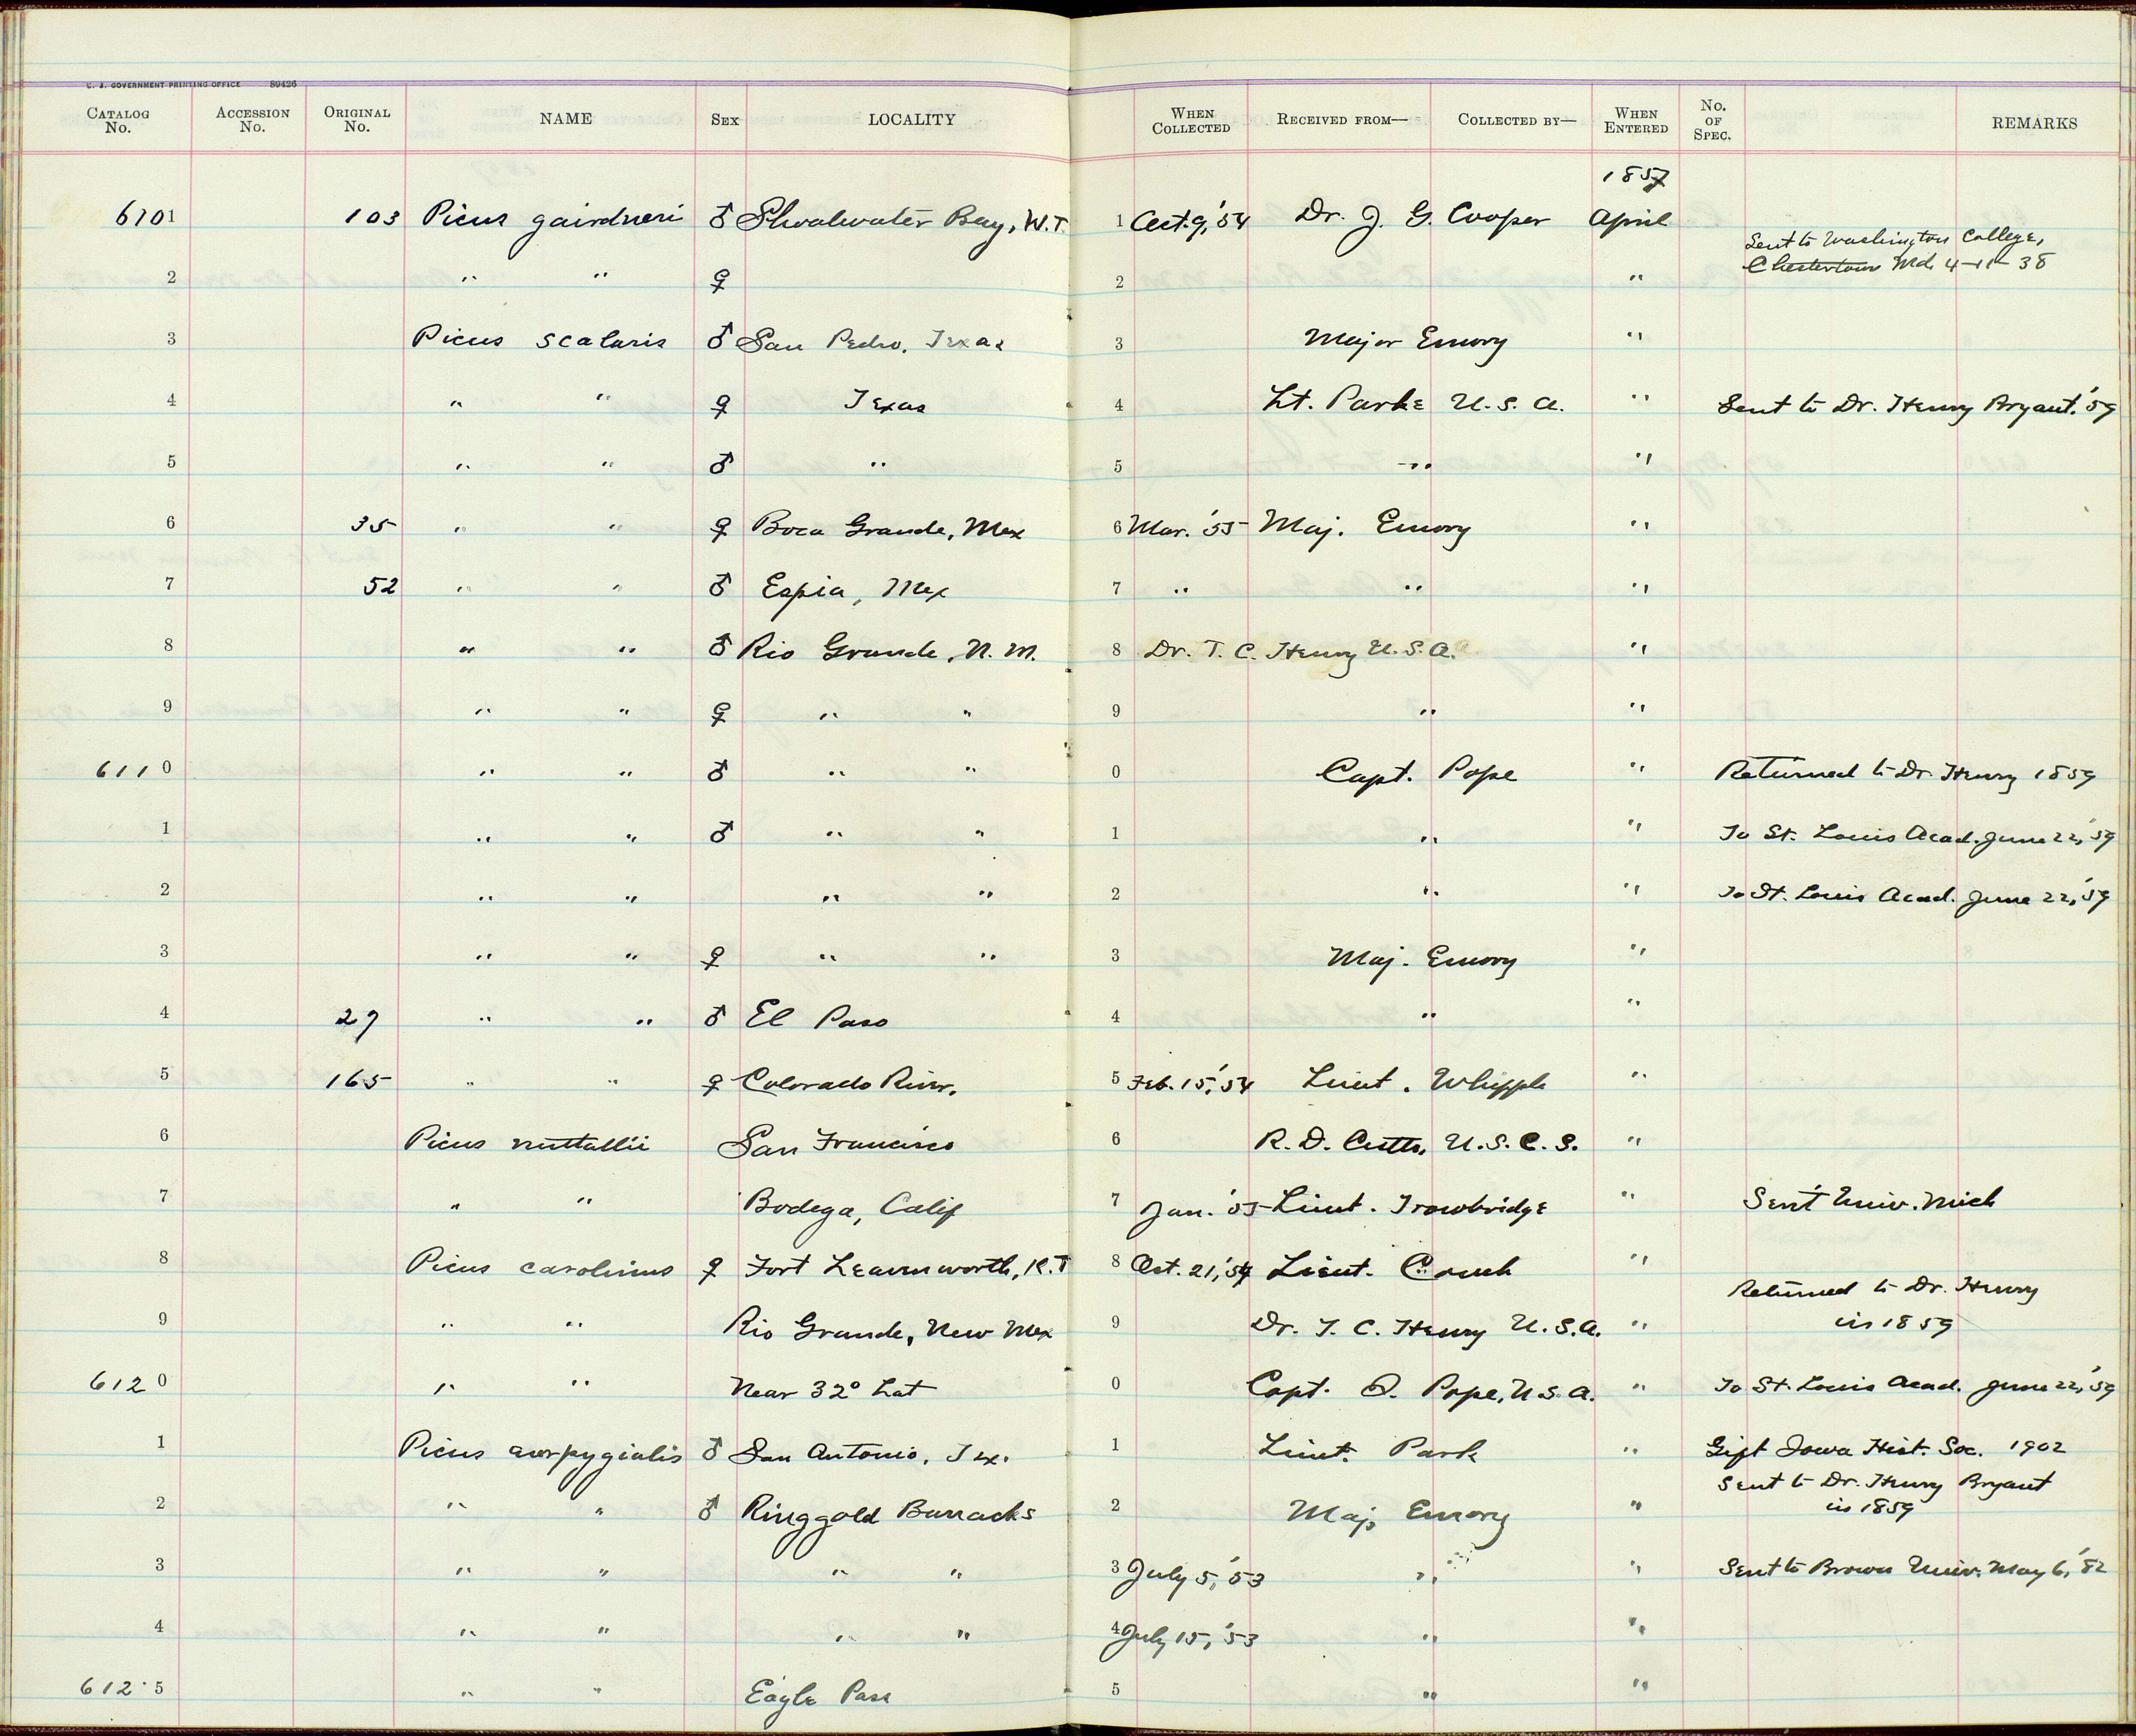 U. S. GOVERNMENT PRINTING OFFICE 89426
CATALOG No. ACCESSION No. ORIGINAL No. NAME SEX LOCALITY WHEN COLLECTED RECEIVED FROM— COLLECTED BY— WHEN ENTERED No. OF SPEC. REMARKS
1857
6101 103 Picus gairdneri ♂ Shoalwater Bay, W.T. 1 Oct. 9, '54 Dr. J. G. Cooper April
Sent to Washington College,
Chestertown Md. 4-11-38
2 " " ♀ 2 "
3 Picus scalaris ♂ San Pedro, Texas 3 Major Emory "
4 " " ♀ Texas 4 Lt. Parke U.S.A. " Sent to Dr. Henry Bryant. '59
5 " " ♂ " 5 " "
6 35 " " ♀ Boca Grande, Mex 6 Mar. '55 Maj. Emory "
7 52 " " ♂ Espia, Mex 7 " " "
8 " " ♂ Rio Grande, N. M. 8 Dr. T. C. Henry U.S.A. "
9 " " ♀ " " 9 " "
6110 " " ♂ " " 0 Capt. Pope " Returned to Dr. Henry 1859
1 " " ♂ " " 1 " " To St. Louis Acad. June 22, '59
2 " " " " 2 " " To St. Louis Acad. June 22, '59
3 " " ♀ " " 3 Maj. Emory "
4 27 " " ♂ El Paso 4 " "
5 165 " " ♀ Colorado River. 5 Feb. 15, '54 Lieut. Whipple "
6 Picus nuttallii San Francisco 6 R. D. Cutts, U.S.C.S. "
7 " " Bodega, Calif 7 Jan. '55 Lieut. Trowbridge " Sent Univ. Mich
8 Picus carolinus ♀ Fort Leavenworth, K.T 8 Oct. 21, '54 Lieut. Couch "
Returned to Dr. Henry
9 " " Rio Grande, New Mex 9 Dr. T. C. Henry U.S.A. " in 1859
6120 " " Near 32° Lat 0 Capt. J. Pope, U.S.A. " To St. Louis Acad. June 22, '59
1 Picus uropygialis ♂ San Antonio, Tex. 1 Lieut. Park " Gift Iowa Hist. Soc. 1902
Sent to Dr. Henry Bryant
2 " " ♂ Ringgold Barracks 2 Maj. Emory " in 1859
3 " " " " 3 July 5, '53 " " Sent to Brown Univ. May 6, '82
4 " " " " 4 July 15, '53 " "
6125 " " Eagle Pass 5 " "